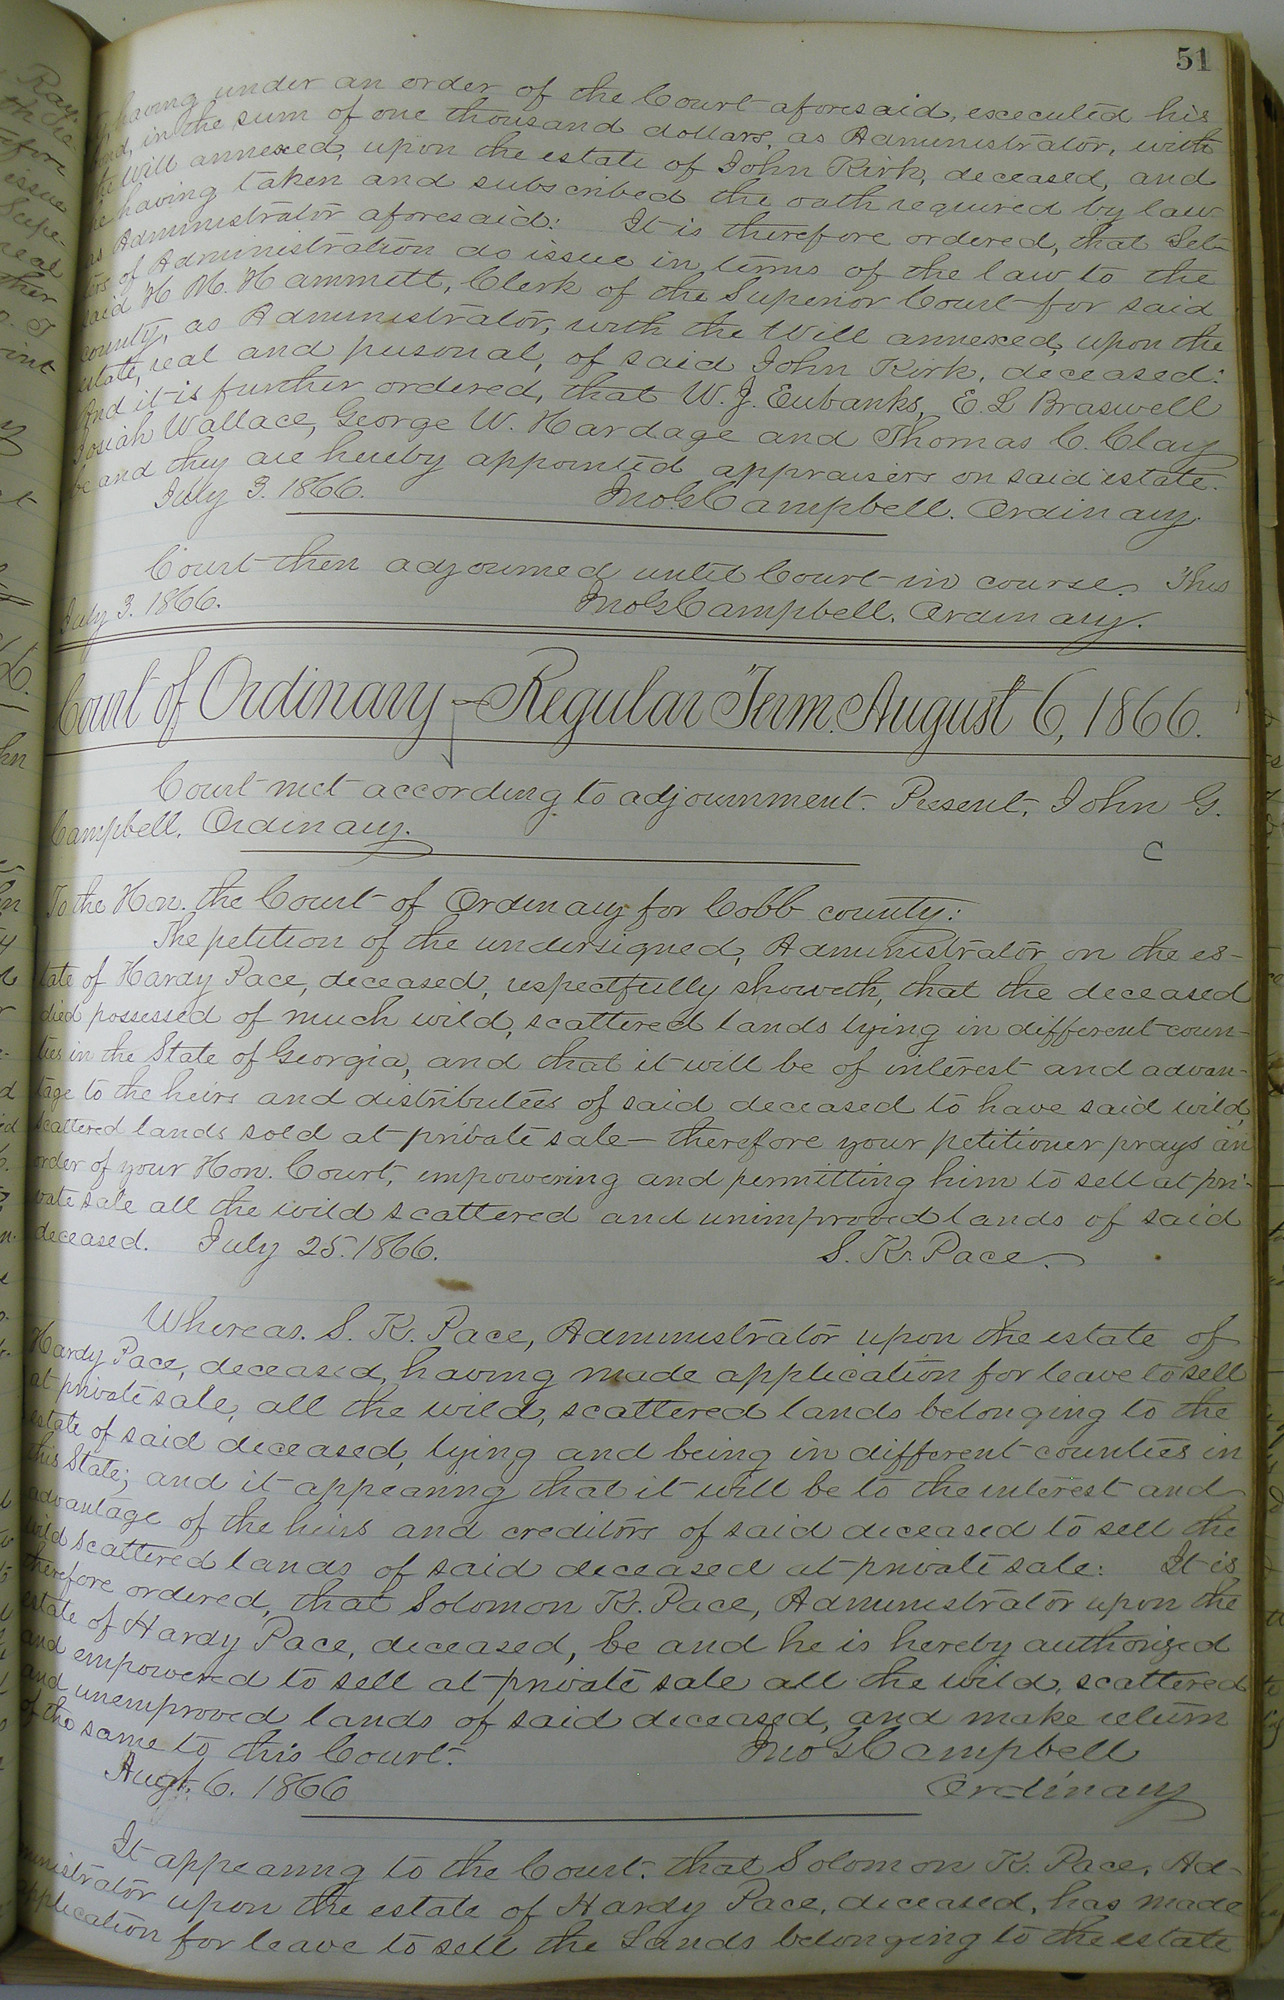 51
having under an order of the Court aforesaid, executed his
bond, in the sum of one thousand dollars, as Administrator, with
the Will annexed, upon the estate of John Kirk, deceased, and
he having taken and subscribed the oath required by law
as Administrator aforesaid: It is therefore ordered, that Let-
ters of Administration do issue in terms of the law to the
said H. M. Hammett, Clerk of the Superior Court for said
county, as Administrator, with the Will annexed, upon the
estate, real and personal, of said John Kirk, deceased:
And it is further ordered, that W. J. Eubanks, E. L Braswell
Josiah Wallace, George W. Hardage and Thomas C. Clay
be and they are hereby appointed appraisers on said estate.
July 3. 1866. Jno G Campbell. Ordinary.
Court then adjourned until Court in course. This
July 3. 1866. Jno G Campbell. Ordinary.
Court of Ordinary - Regular Term. August 6, 1866.
Court met according to adjournment. Present, John G.
Campbell, Ordinary.
C
To the Hon. the Court of Ordinary for Cobb county:
The petition of the undersigned, Administrator on the es-
tate of Hardy Pace, deceased, respectfully showeth, that the deceased
died possessed of much wild, scattered lands lying in different coun-
ties in the State of Georgia, and that it will be of interest and advan-
tage to the heirs and distributees of said deceased to have said wild,
scattered lands sold at private sale - therefore your petitioner prays an
order of your Hon. Court, empowering and permitting him to sell at pri-
vate sale all the wild scattered and unimproved lands of said
deceased. July 25. 1866. S. K. Pace.
Whereas. S. K. Pace, Administrator upon the estate of
Hardy Pace, deceased, having made application for leave to sell
at private sale, all the wild, scattered lands belonging to the
estate of said deceased, lying and being in different counties in
this State; and it appearing that it will be to the interest and
advantage of the heirs and creditors of said deceased to sell the
wild scattered lands of said deceased at private sale: It is
therefore ordered, that Solomon K. Pace, Administrator upon the
estate of Hardy Pace, deceased, be and he is hereby authorized
and empowered to sell at private sale all the wild, scattered
and unemproved lands of said deceased, and make return
of the same to this Court. Jno G Campbell
Augt. 6. 1866 Ordinary
It appearing to the Court, that Solomon K. Pace, Ad-
ministrator upon the estate of Hardy Pace, deceased, has made
application for leave to sell the Lands belonging to the estate